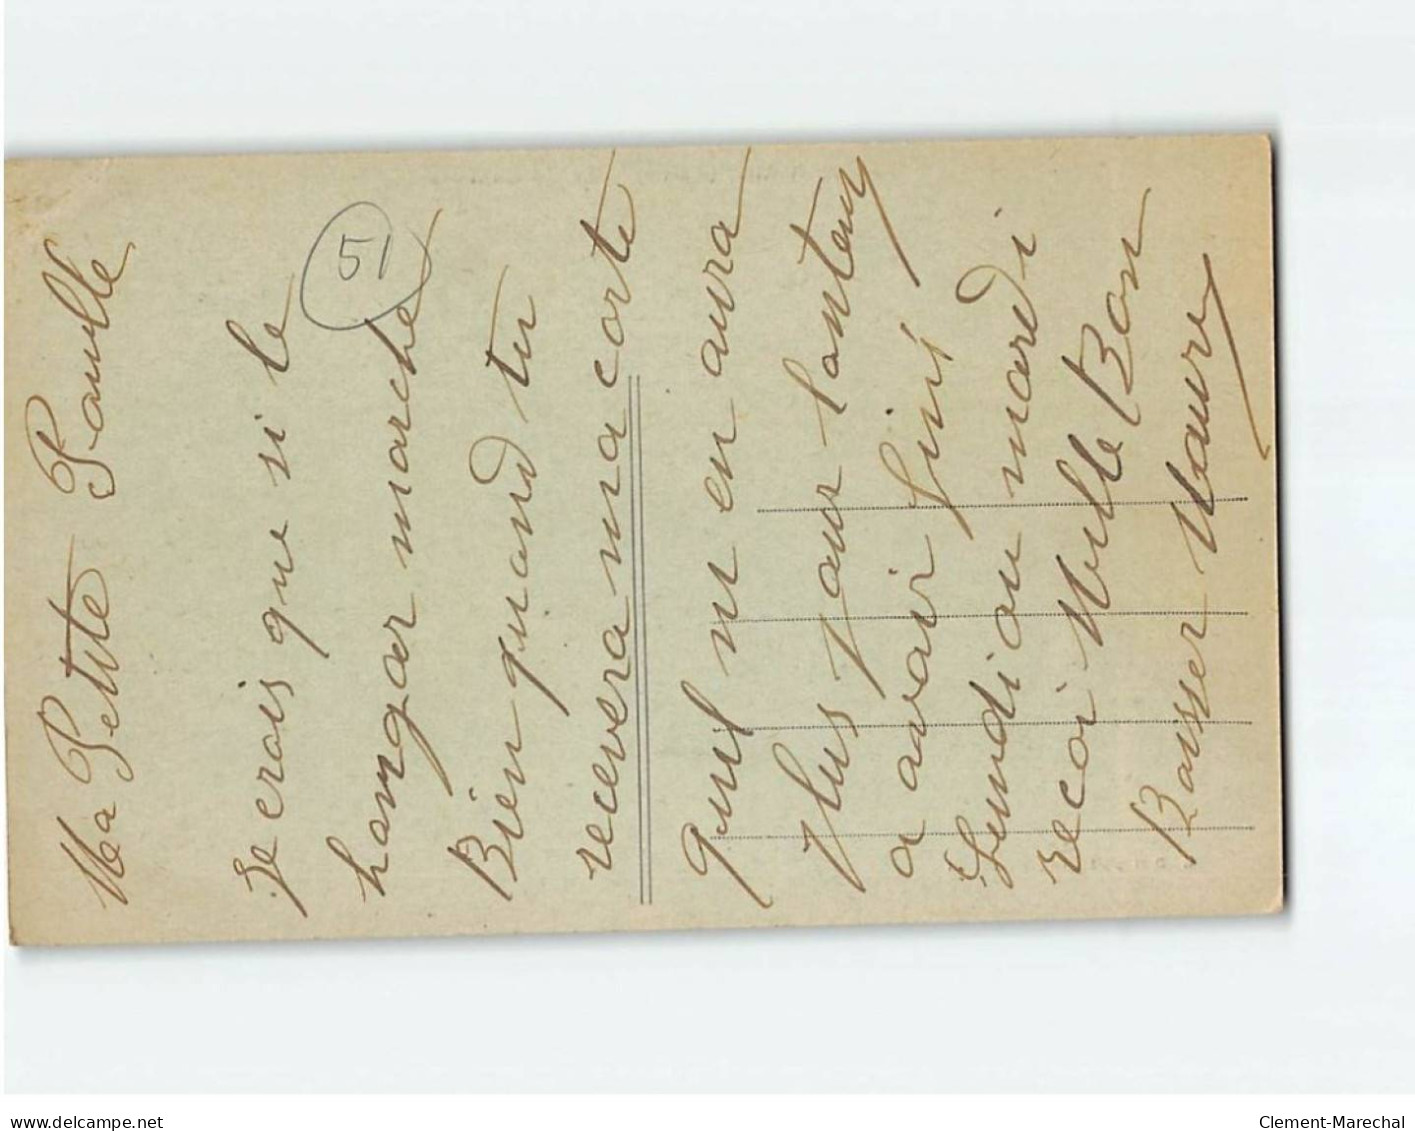 Ma Petite Paulle
Je crois que si le
hangar marche
Bien quand tu
recevera ma carte
quil ni en aura
plus pour lontemp
a avoir finis
Lundi ou mardi
recoi Mille Bon
Baisser Maure
51
www.delcampe.net
Clement-Marechal